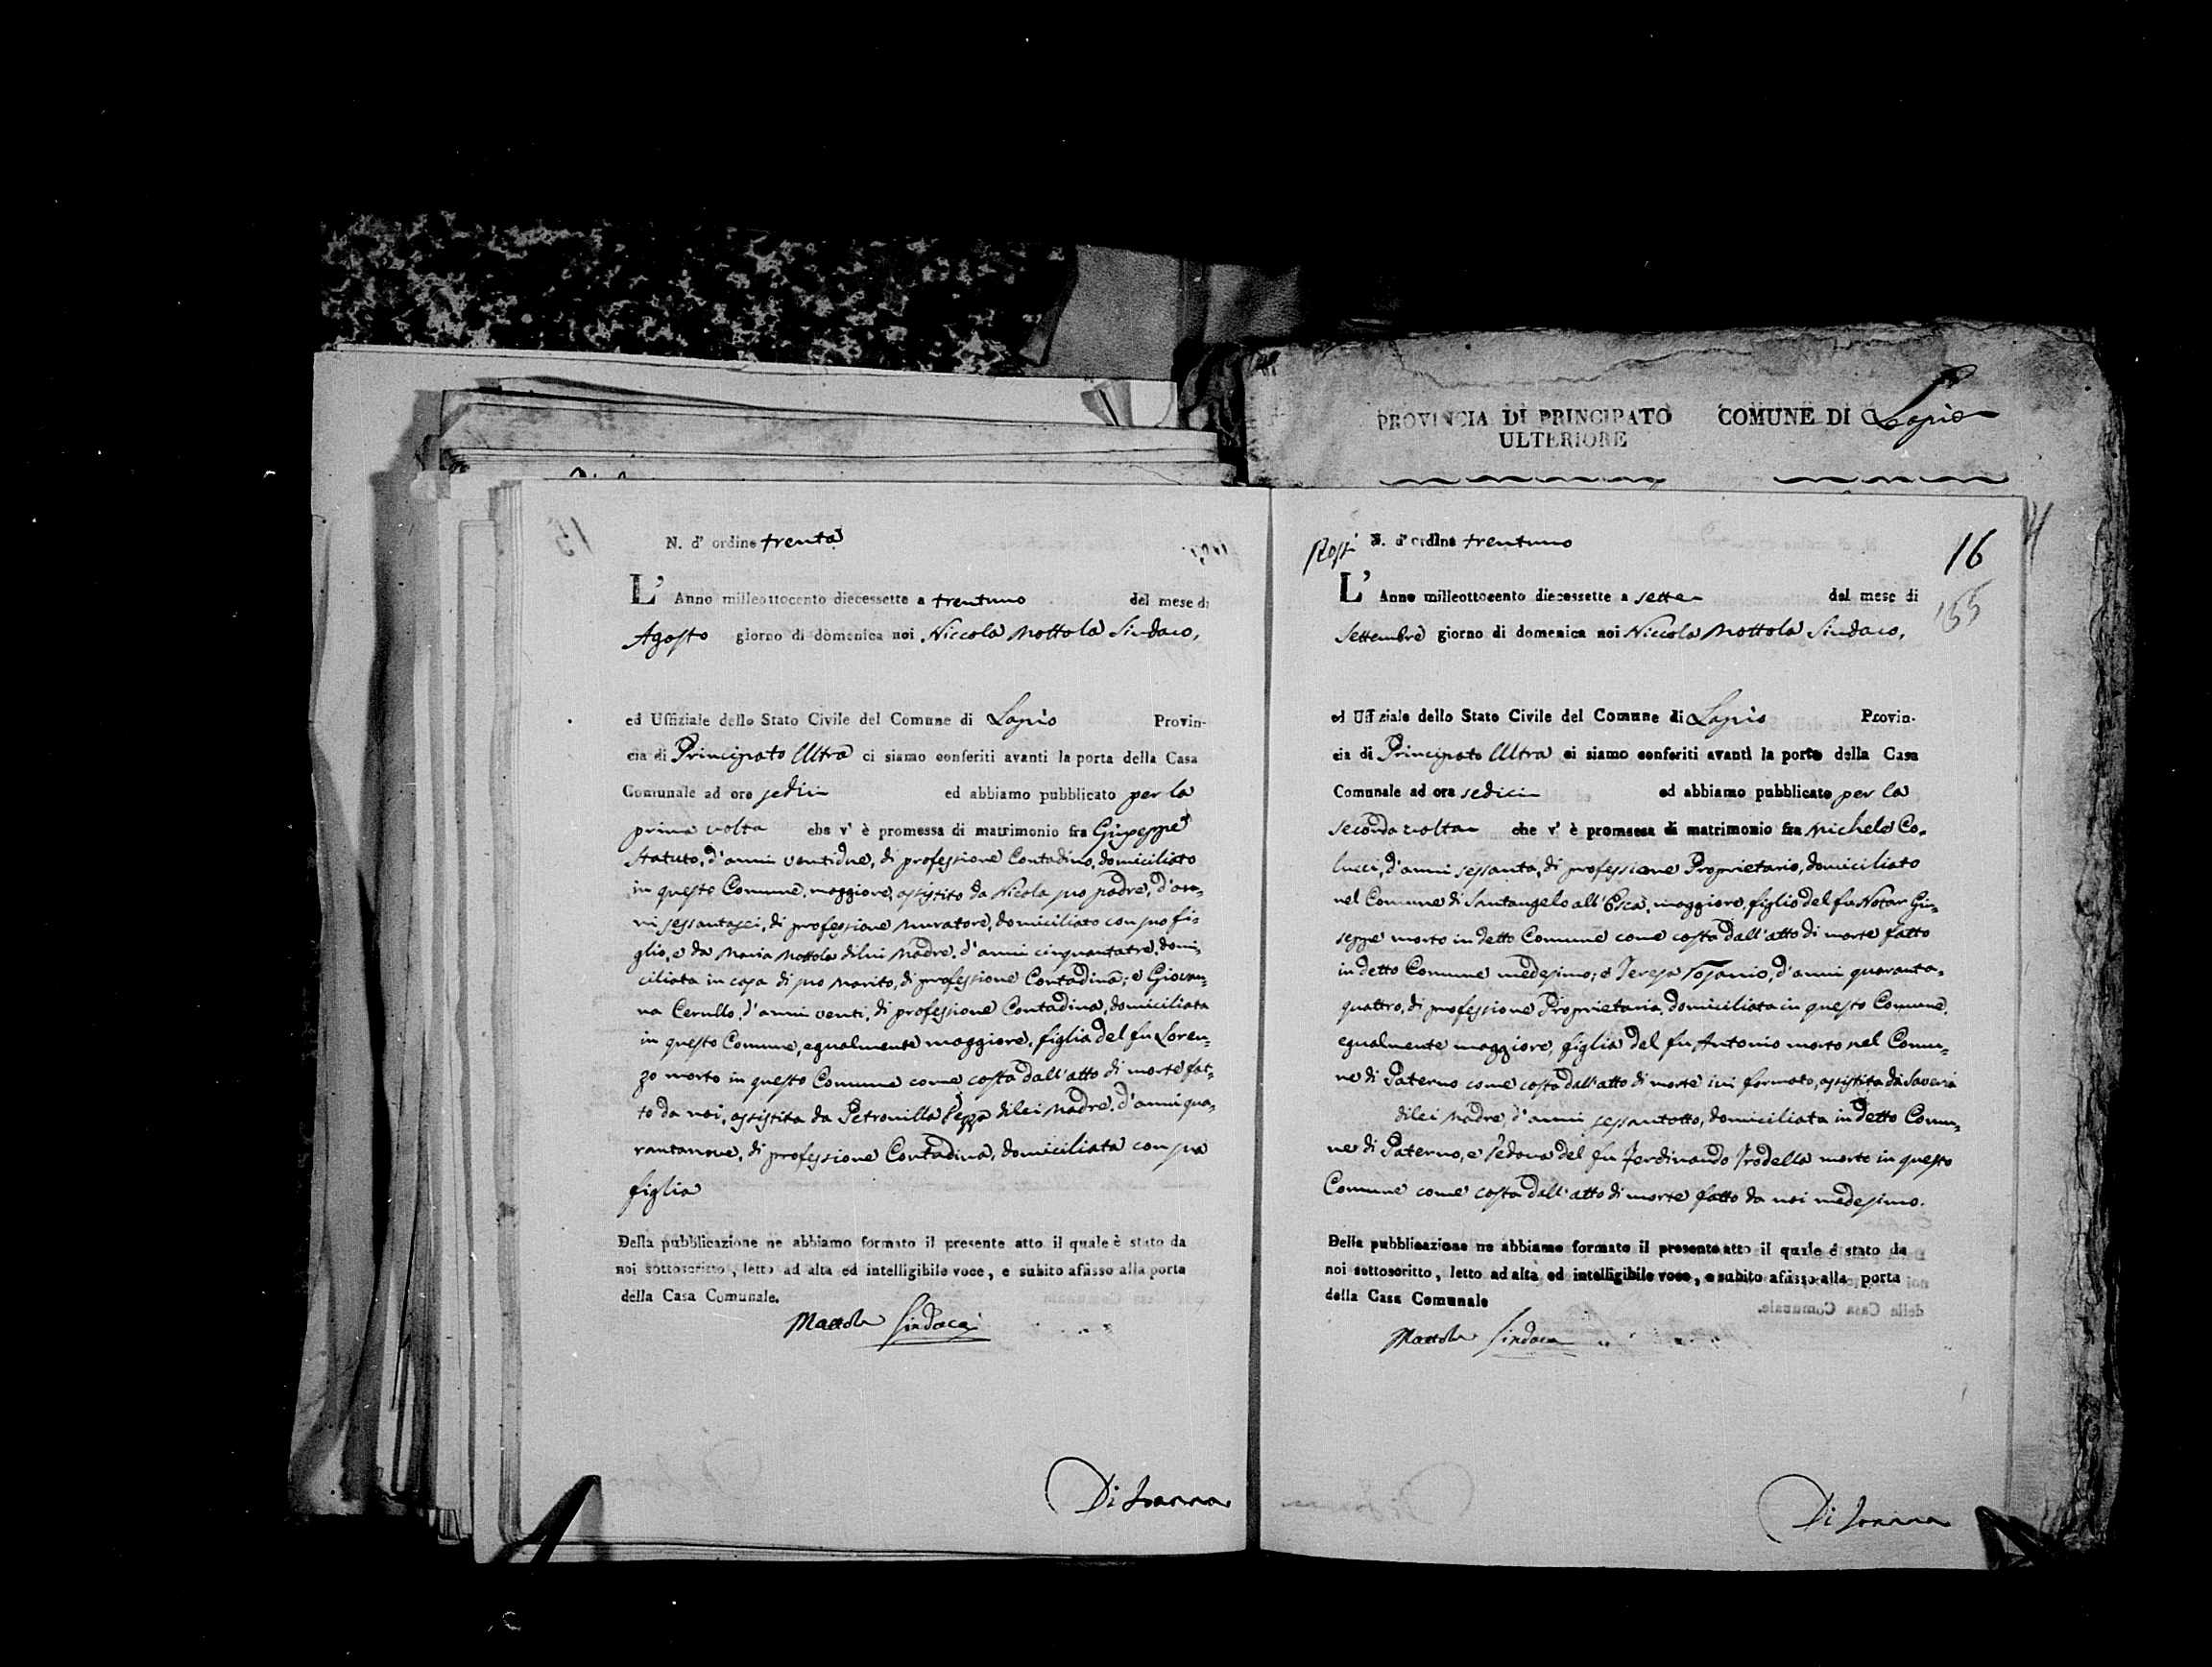 PROVINCIA DI PRINCIPATO ULTERIORE
COMUNE DI Lapio
N. d' ordine trenta
L' Anno milleottocento diecessette a trentuno del mese di
Agosto giorno di domenica noi Niccola Mottola Sindaco,
ed Uffiziale dello Stato Civile del Comune di Lapio Provin-
cia di Principato Ultra ci siamo conferiti avanti la porta della Casa
Comunale ad ore sedici ed abbiamo pubblicato per la
prima volta che v' è promessa di matrimonio fra Giuseppe
Statuto, d'anni ventidue, di professione Contadino, domiciliato
in questo Comune, maggiore, assistito da Nicola suo padre, d'an-
ni sessantasei, di professione Muratore, domiciliato con suo fi-
glio, e da Maria Mottola di lui Madre, d'anni cinquantatre, domi-
ciliata in casa di suo Marito, di professione Contadina; e Giovan-
na Cerullo, d'anni venti, di professione Contadina, domiciliata
in questo Comune, egualmente maggiore, figlia del fu Loren-
zo morto in questo Comune come costa dall'atto di morte fat-
to da noi, assistita da Petronilla di lei Madre, d'anni qua-
rantanove, di professione Contadina, domiciliata con sua
figlia
Della pubblicazione ne abbiamo formato il presente atto il quale è stato da
noi sottoscritto, letto ad alta ed intelligibile voce, e subito afisso alla porta
della Casa Comunale.
Mottola Sindaco
Di Ioanna
N. d' ordine trentuno
16
155
L' Anno milleottocento diecessette a sette del mese di
Settembre giorno di domenica noi Niccola Mottola Sindaco,
ed Uffiziale dello Stato Civile del Comune di Lapio Provin-
cia di Principato Ultra ci siamo conferiti avanti la porta della Casa
Comunale ad ora sedici ed abbiamo pubblicato per la
seconda volta che v' è promessa di matrimonio fra Michele Co-
lucci, d'anni sessanta, di professione Proprietario, domiciliato
nel Comune di Santangelo all'Esca, maggiore, figlio del fu Notar Giu-
seppe morto in detto Comune come costa dall'atto di morte fatto
in detto Comune medesimo; e Teresa d'anni quaranta-
quattro, di professione Proprietaria, domiciliata in questo Comune,
egualmente maggiore, figlia del fu Antonio morto nel Comu-
ne di Paterno come costa dall'atto di morte ivi formato, assistita da Saveria
di lei Madre, d'anni sessantotto, domiciliata in detto Comu-
ne di Paterno, e Vedova del fu Ferdinando Trodella morto in questo
Comune come costa dall'atto di morte fatto da noi medesimo.
Della pubblicazione ne abbiamo formato il presente atto il quale è stato da
noi sottoscritto, letto ad alta ed intelligibile voce, e subito afisso alla porta
della Casa Comunale
Mottola Sindaco
Di Ioanna